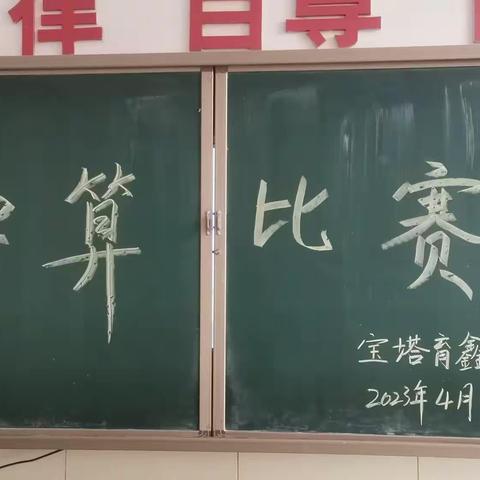 律自尊
算比赛
宝塔育鑫
2023年4月